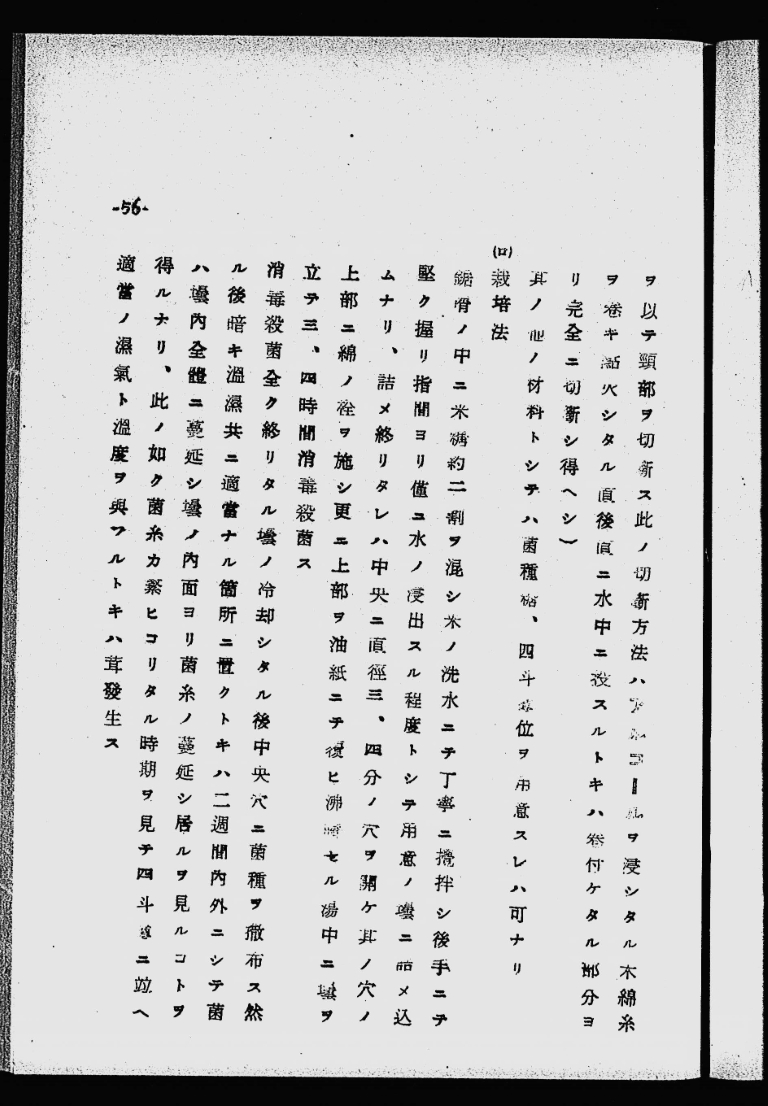 ヲ以テ頸部ヲ切斷ス此ノ切斷方法ハアルコールヲ浸シタル木綿糸
ヲ卷キ點火シタル直後直ニ水中ニ投スルトキハ卷付ケタル部分ヨ
リ完全ニ切斷シ得ヘシ）
其ノ他ノ材料トシテハ菌種糀、四斗樽位ヲ用意スレハ可ナリ
(ロ)栽培法
鋸屑ノ中ニ米糠約二割ヲ混シ米ノ洗水ニテ丁寧ニ攪拌シ後手ニテ
堅ク握リ指間ヨリ僅ニ水ノ浸出スル程度トシテ用意ノ壜ニ詰メ込
ムナリ、詰メ終リタレハ中央ニ直徑三、四分ノ穴ヲ開ケ其ノ穴ノ
上部ニ綿ノ栓ヲ施シ更ニ上部ヲ油紙ニテ復ヒ沸騰セル湯中ニ壜ヲ
立テ三、四時間消毒殺菌ス
消毒殺菌全ク終リタル壜ノ冷却シタル後中央穴ニ菌種ヲ撒布ス然
ル後暗キ溫濕共ニ適當ナル箇所ニ置クトキハ二週間內外ニシテ菌
ハ壜內全體ニ蔓延シ壜ノ內面ヨリ菌糸ノ蔓延シ居ルヲ見ルコトヲ
得ルナリ、此ノ如ク菌糸カ繁ヒコリタル時期ヲ見テ四斗樽ニ竝ヘ
適當ノ濕氣ト溫度ヲ與フルトキハ茸發生ス
-56-